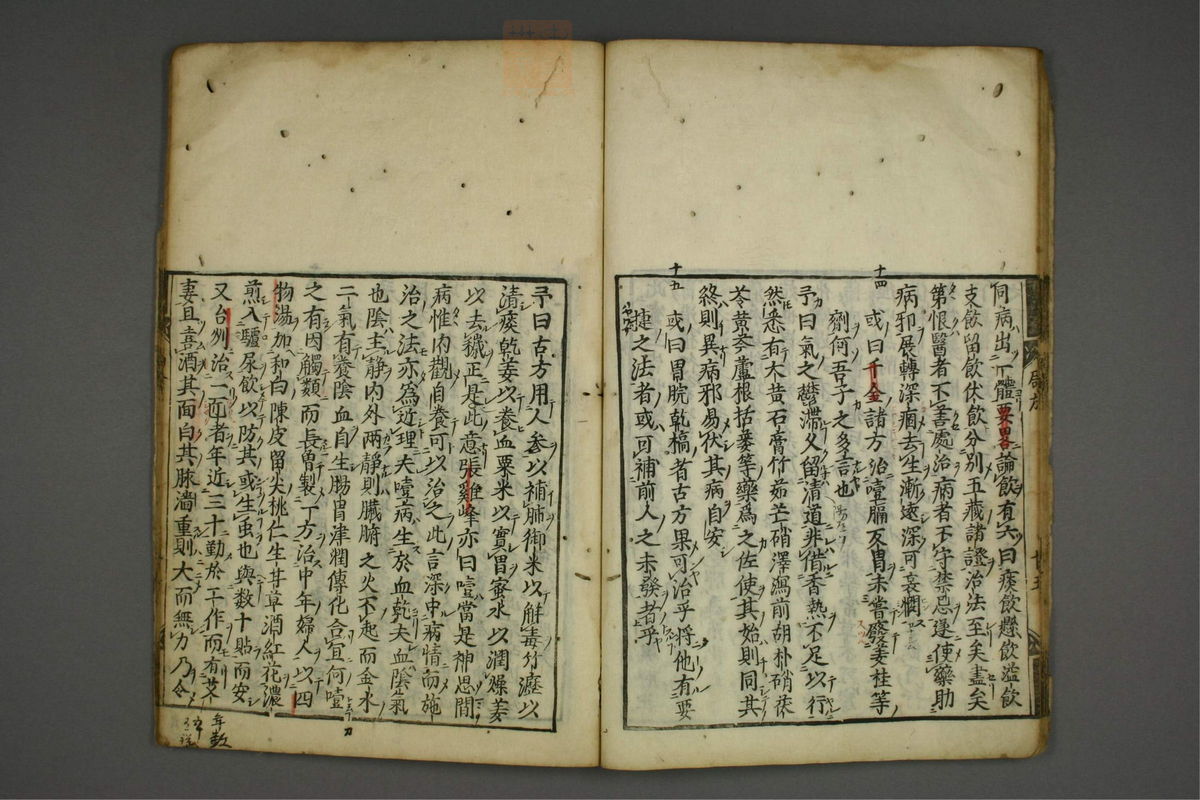 同病出一體要畧論飲有六曰痰飲懸飲溢飲
支飲留飲伏飲分別五藏諸證治法至矣盡矣
第恨醫者不善處治病者不守禁忌遂使藥助
病邪展轉深痼去生漸遠深可哀憫
十四
或曰千金諸方治噎膈反胃未嘗廢姜桂等
劑何吾子之多言也
予曰氣之鬱滯久留清道非借香熱不足以行
然悉有大黃石膏竹茹芒硝澤瀉前胡朴硝茯
苓黃芩蘆根括蔞等藥為之佐使其始則同其
終則異病邪易伏其病自安
十五
或曰胃脘乾槁者古方果可治乎將他有要
捷之法者或可補前人之未發者乎
予曰古方用人參以補肺御米以解毒竹瀝以
清痰乾姜以養血粟米以實胃蜜水以潤燥姜
以去穢正是此意張雞峰亦曰噎當是神思間
病惟內觀自養可以治之此言深中病情而施
治之法亦為近理夫噎病生於血乾夫血陰氣
也陰主靜內外兩靜則臟腑之火不起而金水
二氣有養陰血自生腸胃津潤傳化合宜何噎
之有因觸類而長曽製一方治中年婦人以四
物湯加和白陳皮留尖桃仁生甘草酒紅花濃
煎入驢尿飲以防其或生虫也與数十貼而安
又台州治一匠者年近三十勤於工作而有艾
妻且喜酒其面白其脉濇重則大而無力乃令